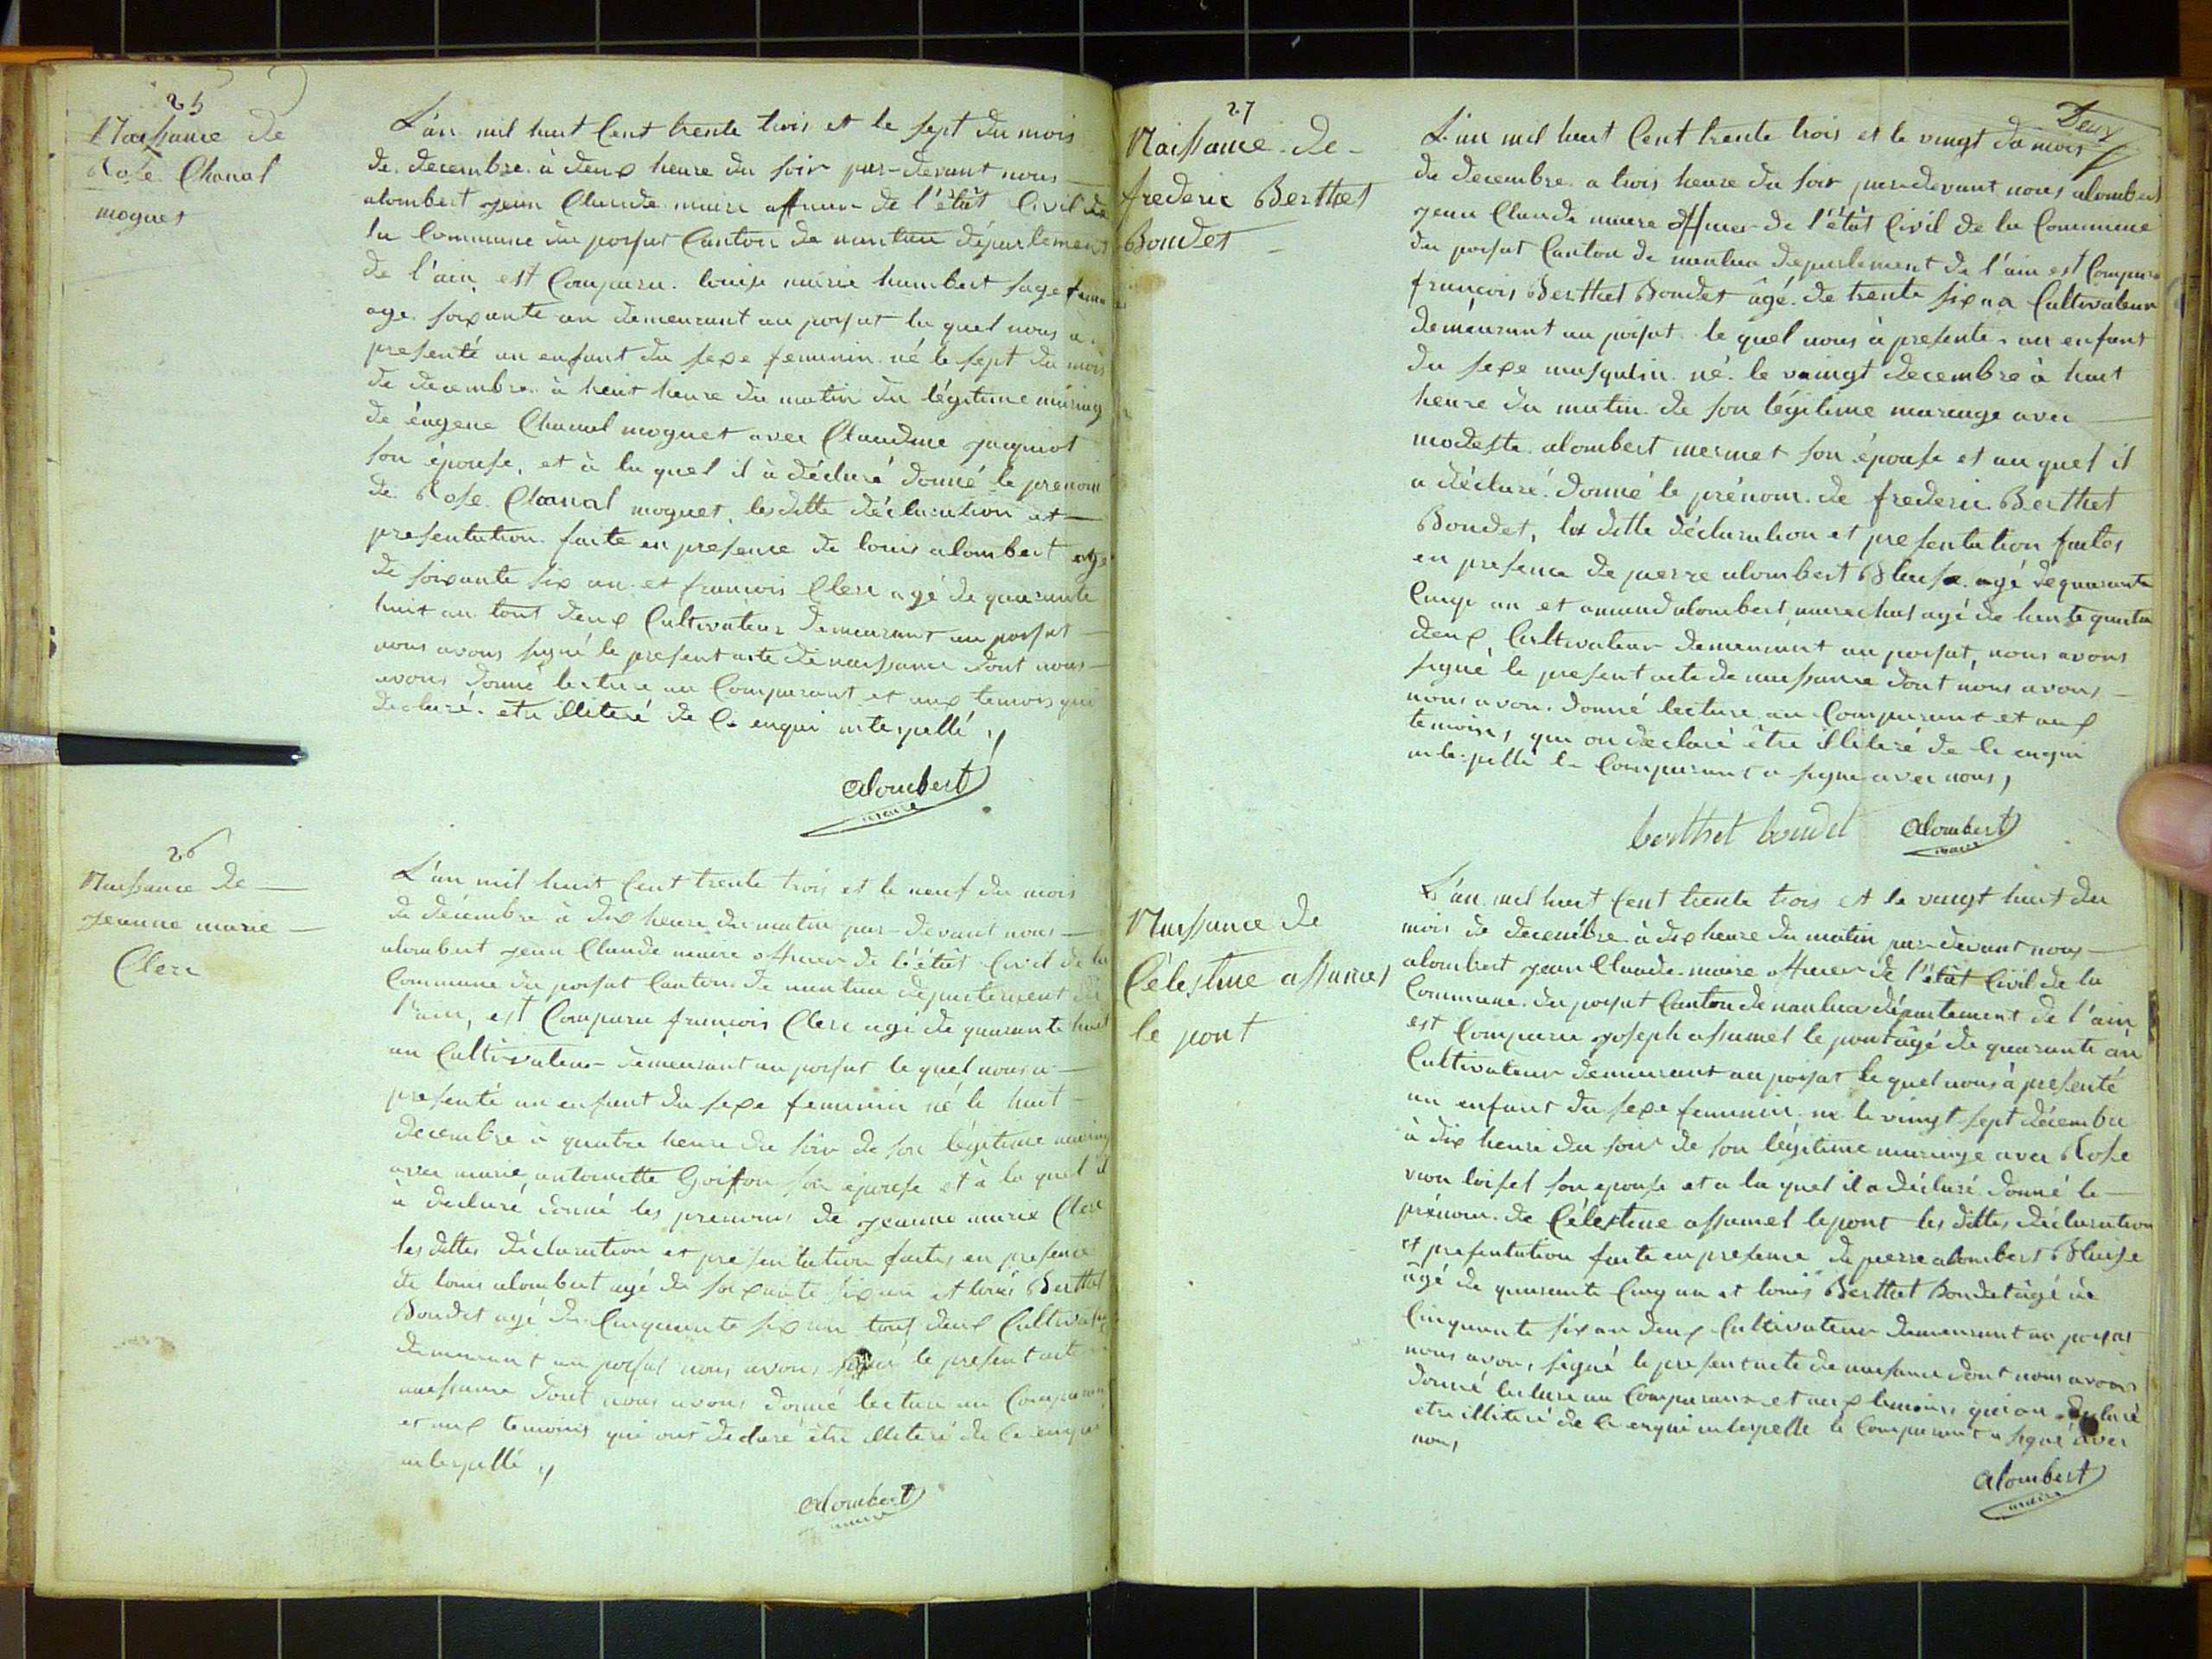 25
Naissance de
Rose Chanal
moguet
L'an mil huit Cent trente trois et le sept du mois
de decembre à deux heure du soir par-devant nous
alombert jean Claude maire officier de l'êtât Civil de
la Commune du poisat Canton de nantua département
de l'ain est Comparu louise marie humbert sage feme
age soixante an demeurant au poisat la quel nous a
presenté un enfant du sexe feminin né le sept du mois
de decembre à huit heure du matin du légitime mariag
de éugene Chanal moguet avec Claudine jacquiot
son épouse, et à la quel il à déclaré donné le prenom
de Rose Chanal moguet, lesditte déclaration et
presentation faite en presence de louis alombert agé
de soixante six an et francois Clerc agé de quarante
huit an tout deux Cultivateur demeurant au poisat
nous avons signé le present acte de naissance dont nous
avons donné lecture au Comparant et aux temois qui
declaré etre illiteré de Ce enqui interpellé
alombert
maire
26
Naissance de
jeanne marie
Clerc
L'an mil huit Cent trente trois et le neuf du mois
de décembre à dix heure du matin par-devant nous
alombert jean Claude maire officier de l'êtât Civil de la
Commune du poisat Canton de nantua departement de
l'ain, est Comparu francois Clerc agé de quarante huit
an Cultivateur demeurant au poisat le quel nous a
presenté un enfant du sexe feminin né le huit
decembre à quatre heure du soir de son légitime mariag
avec marie antoinette Goiffon son épouse et à la quel il
à declaré donné les prenoms de jeanne marie Clerc
les dittes déclaration et presentation faites en presence
de louis alombert agé de soixante six an et louis Berthet
Boudet agé de Cinquante six an tout deux Cultivateur
demeurant au poisat nous avons signé le present acte
naissance dont nous avons donné lecture au Comparant
et aux temoins qui ont declaré etre illiteré de Ce enqui
interpellé
alombert
maire
27
Naissance de
frederic Berthet
Boudet
Deux
L'an mil huit Cent trente trois et le vingt du mois
de decembre a trois heure du soir par-devant nous alombert
jean Claude maire officier de l'êtât Civil de la Commune
du poisat Canton de nantua departement de l'ain est Comparu
françois Berthet Boudet âgé de trente six an Cultivateur
demeurant au poisat le quel nous à presente un enfant
du sexe masqulin né le vaingt decembre à huit
heure du matin de son légitime mariage avec
modeste alombert mermet son épouse et au quel il
a déclaré donné le prénom de frederic Berthet
Boudet, les ditte déclaration et presentation faites
en presence de pierre alombert Blaise agé de quarante
Cinqe an et amand alombert marechal agé de trente quatre
deux Cultivateur demeurant au poisat, nous avons
signé le present acte de naissance dont nous avons
nous avons donné lecture au Comparant et aux
temoins, qui on declaré être illiteré de Ce enqui
interpellé le Comparant a signé avec nous,
berthet boudet
alombert
maire
Naissance de
Célestine assumel
le pont
L'an mil huit Cent trente trois et le vingt huit du
mois de decembre à dix heure du matin par-devant nous
alombert jean Claude maire officier de l'êtât Civil de la
Commune du poisat Canton de nantua département de l'ain
est Comparu joseph assumel le pont âgé de quarante an
Cultivateur demeurant au poisat le quel nous à presenté
un enfant du sexe feminin né le vingt sept décembre
à dix heure du soir de son légitime mariage avec Rose
vion loisel son epouse et a la quel il a déclaré donné le
prénom de Célestine assumel lepont les dittes déclaration
et presentation faite en presence de pierre alombert Blaise
âgé de quarente Cinq an et louis Berthet Boudet âgé de
Cinquante six an deux Cultivateur demeurant au poisat
nous avons signé le present acte de naissance dont nous avons
donné lecture au Comparant et aux temoins qui on declaré
etre illiteré de Ce enqui interpellé le Comparant a signé avec
nous
alombert
maire